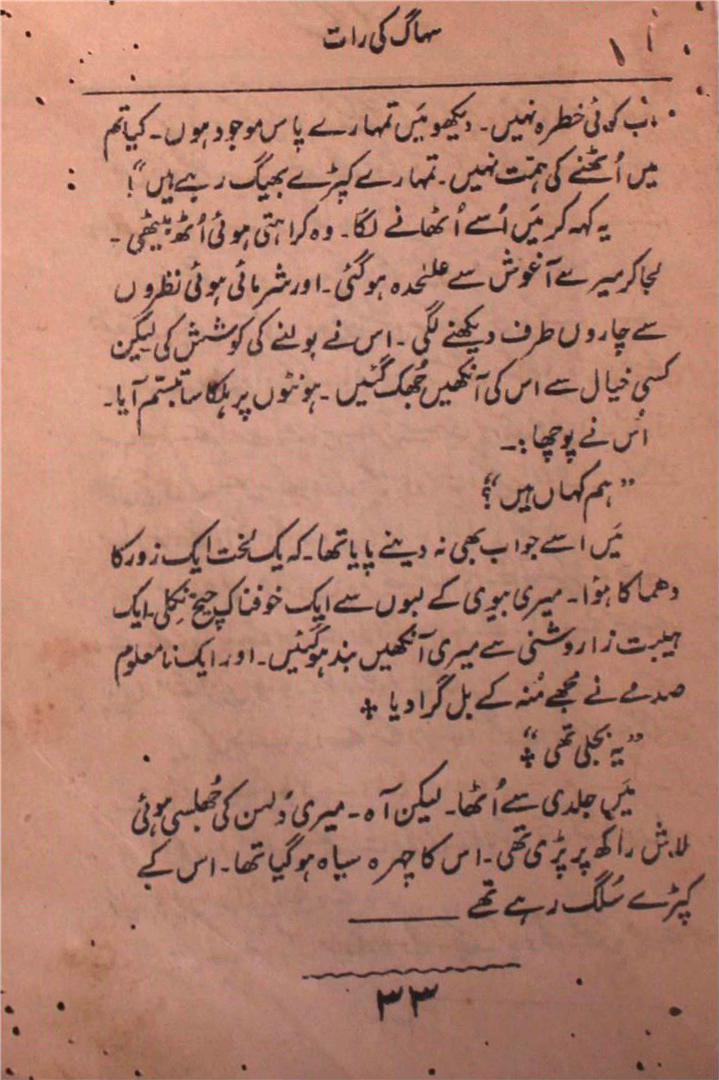 سہاگ کی رات
اب کوئی خطرہ نہیں۔ دیکھو میَں تمہارے پاس موجود ہوں۔ کیا تم
میں اُٹھنے کی ہمت نہیں۔ تمہارے کپڑے بھیگ رہے ہیں“!
یہ کہہ کر میَں اُسے اُٹھانے لگا۔ وہ کراہتی ہوئی اُٹھ بیٹھی۔
لجا کر میرے آغوش سے علٰحدہ ہوگئی۔ اور شرمائی ہوئی نظروں
سے چاروں طرف دیکھنے لگی۔ اس نے بولنے کی کوشش کی لیکن
کسی خیال سے اس کی آنکھیں جُھک گئیں۔ ہونٹوں پر ہلکا سا تبسّم آیا۔
اُس نے پوچھا:۔
”ہم کہاں ہیں“؟
میَں اسے جواب بھی نہ دینے پایا تھا۔ کہ یک لخت ایک زور کا
دھماکا ہؤا۔ میری بیوی کے لبوں سے ایک خوفناک چیخ نکلی۔ ایک
ہیبت زا روشنی سے میری آنکھیں بند ہوگئیں۔ اور ایک نامعلوم
صدمے نے مُجھے مُنہ کے بل گرا دیا ٭
”یہ بجلی تھی“ ٭
میَں جلدی سے اُٹھا۔ لیکن آہ۔ میری دُلہن کی جُھلسی ہوئی
لاش راکھ پر پڑی تھی۔ اس کا چہرہ سیاہ ہوگیا تھا۔ اس کے
کپڑے سُلگ رہے تھے ———
۳۳